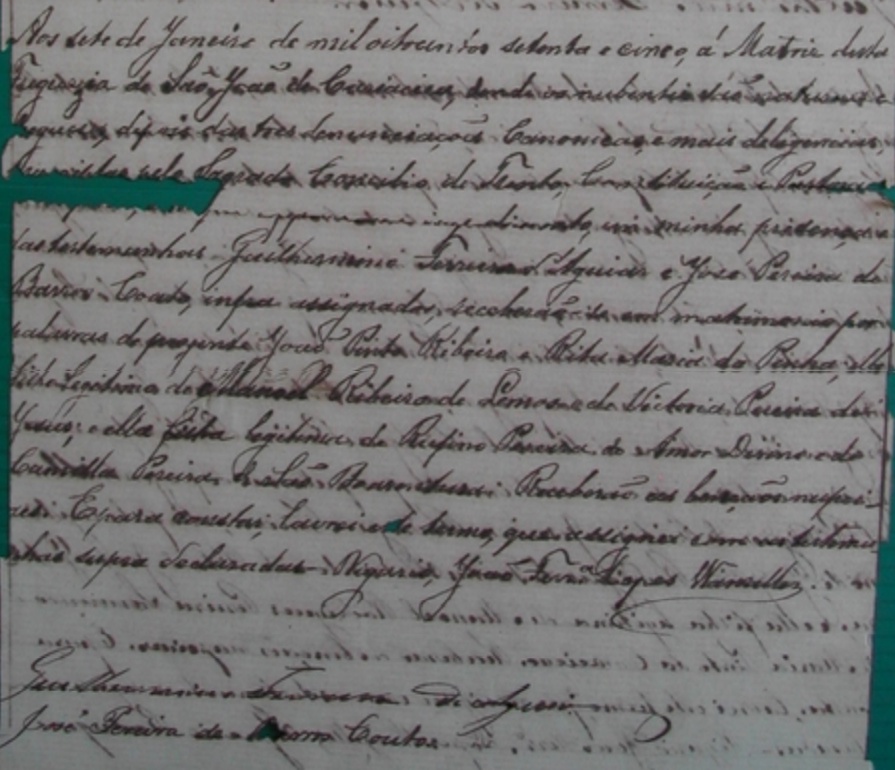 Aos sete de Janeiro de mil oitocentos setenta e cinco, á Matriz desta
Freguezia de São João de Cariacica, donde os nubentes são naturaes e
depois das tres denunciações Canonicas, e mais deligencias,
pelo Sagrado Concilio de Trento, Constituição e
impedimento, em minha presença e
das testemunhas Guilhermino Ferreira d'Aguiar e José Pereira de
Barros Couto, infra assignados, receberão-se em matrimonio por
palavras de prezente João Pinto Ribeiro e Rita Maria da Penha, elle
filho legitimo de Manoel Ribeiro de Lemos e de Victoria Pereira de
Jesus; e ella filha legitima de Rufino Pereira do Amor Divino e de
Camilla Pereira de São Boaventura: Receberão as benções nupci-
aes: E para constar, lavrei este termo, que assignei com as testemu-
nhas supra declaradas. Vigario, João Ferrª Lopes Wanzeller
Guilhermino Ferreira de Aguiar
José Pereira de Barros Couto